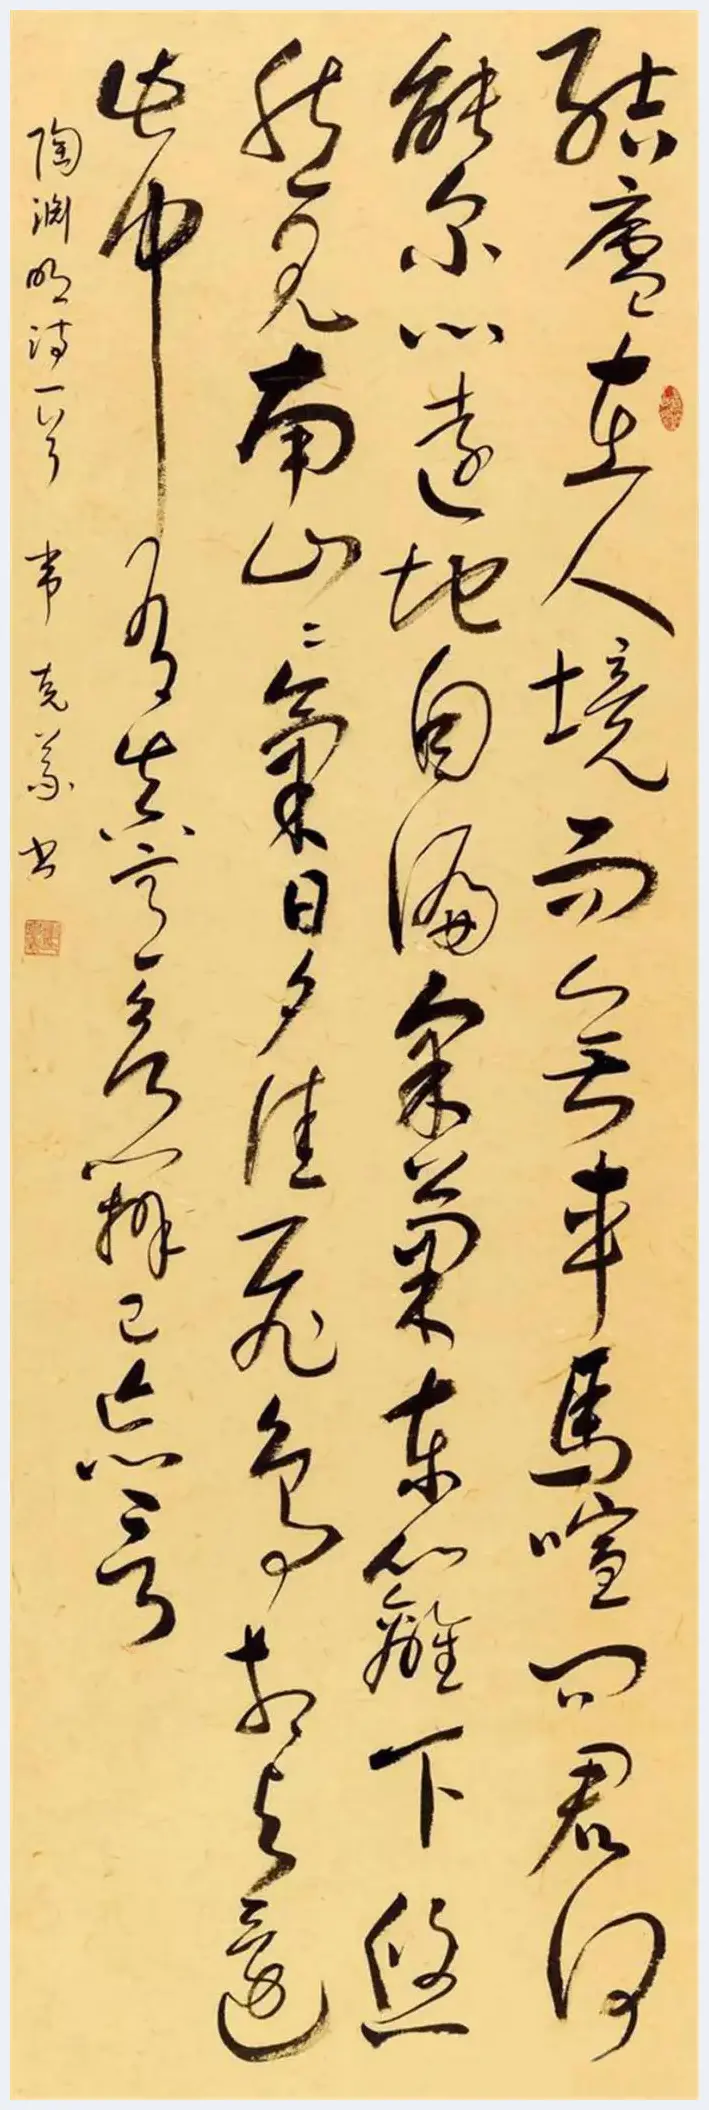 結廬在人境而無車馬喧問君何
能尔心遠地自偏采菊東籬下悠
然見南山〻氣日夕佳飛鳥相与還
此中有真意欲辨已忘言
陶淵明詩一首 韋克義書